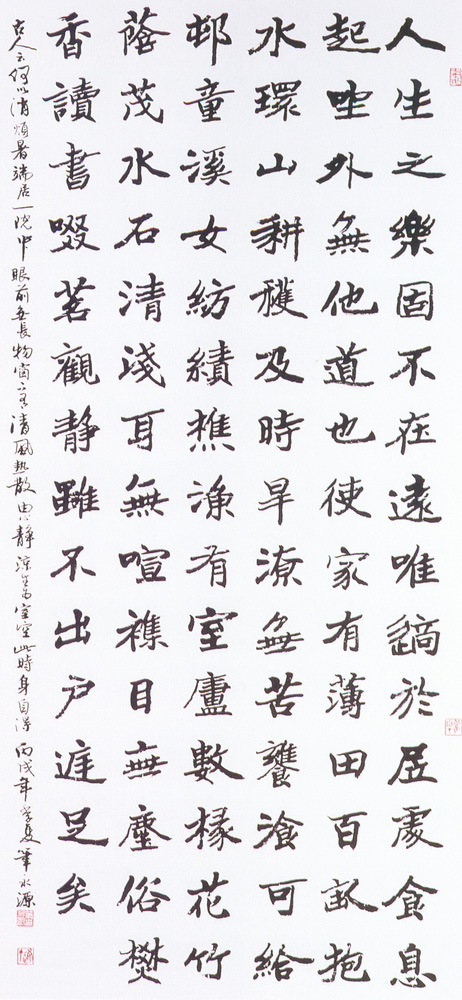 人生之樂固不在遠唯適於居處食息
起坐外無他道也使家有薄田百畝抱
水環山耕穫及時旱潦無苦饔湌可給
邨童溪女紡績樵漁有室廬數椽花竹
蔭茂水石清淺耳無喧襍目無塵俗燓
香讀書啜茗觀靜雖不出戶庭足矣
古人云何以消煩暑端居一院中眼前無長物窗下有清風熱散由心靜涼生為室空此時身自得 丙戌年 夏 永源